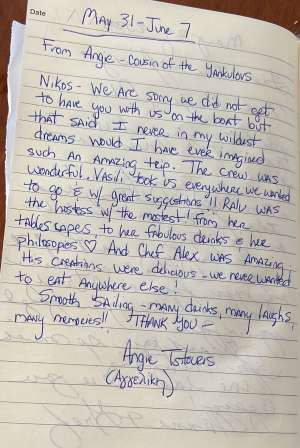 Date
May 31 - June 7
From Angie - Cousin of the Yankulovs
Nikos - We are sorry we did not get
to have you with us on the boat but
that said I never in my wildest
dreams would I have ever imagined
such an amazing trip. The crew was
wonderful. Vasili took us everywhere we wanted
to go & w/ great suggestions!! Ralu was
the hostess w/ the mostest! from her
tablescapes to her fabulous drinks & her
philosopes ♡ And Chef Alex was AMAZING!
His creations were delicious - we never wanted
to eat anywhere else!
Smooth sailing - many drinks, many laughs,
many memories!! THANK YOU -
Angie
(Αγγελική)